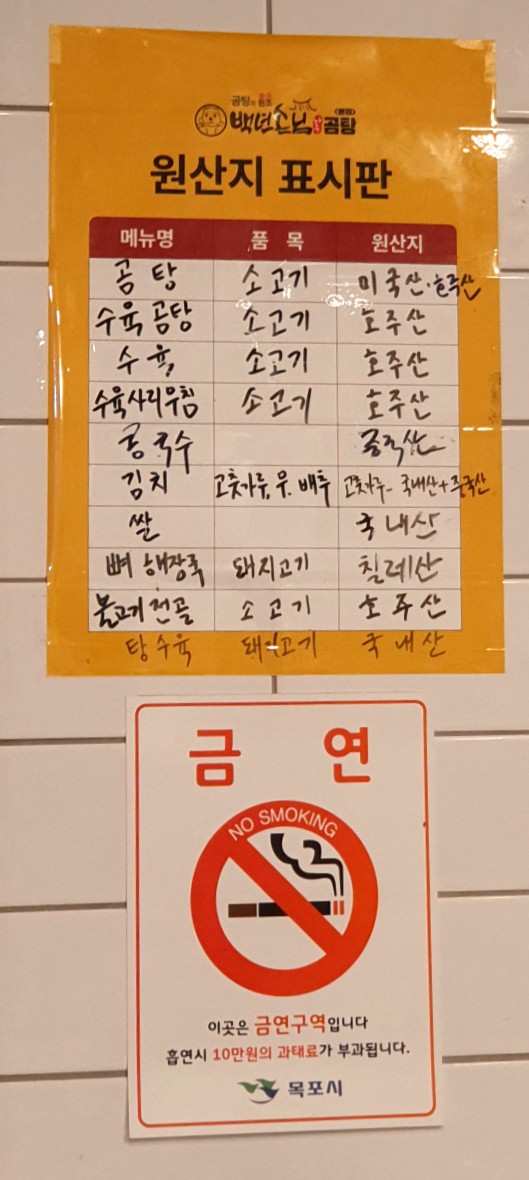 곰탕의 원조
백년손님 곰탕 <본점>
원산지 표시판
메뉴명 품 목 원산지
곰 탕 소고기 미국산·호주산
수육곰탕 소고기 호주산
수 육 소고기 호주산
수육사리무침 소고기 호주산
콩국수
김치 고춧가루, 무, 배추 고춧가루- 국내산+중국산
쌀 국내산
뼈 해장국 돼지고기 칠레산
불고기전골 소고기 호주산
탕수육 돼지고기 국내산
금 연
NO SMOKING
이곳은 금연구역입니다
흡연시 10만원의 과태료가 부과됩니다.
목포시